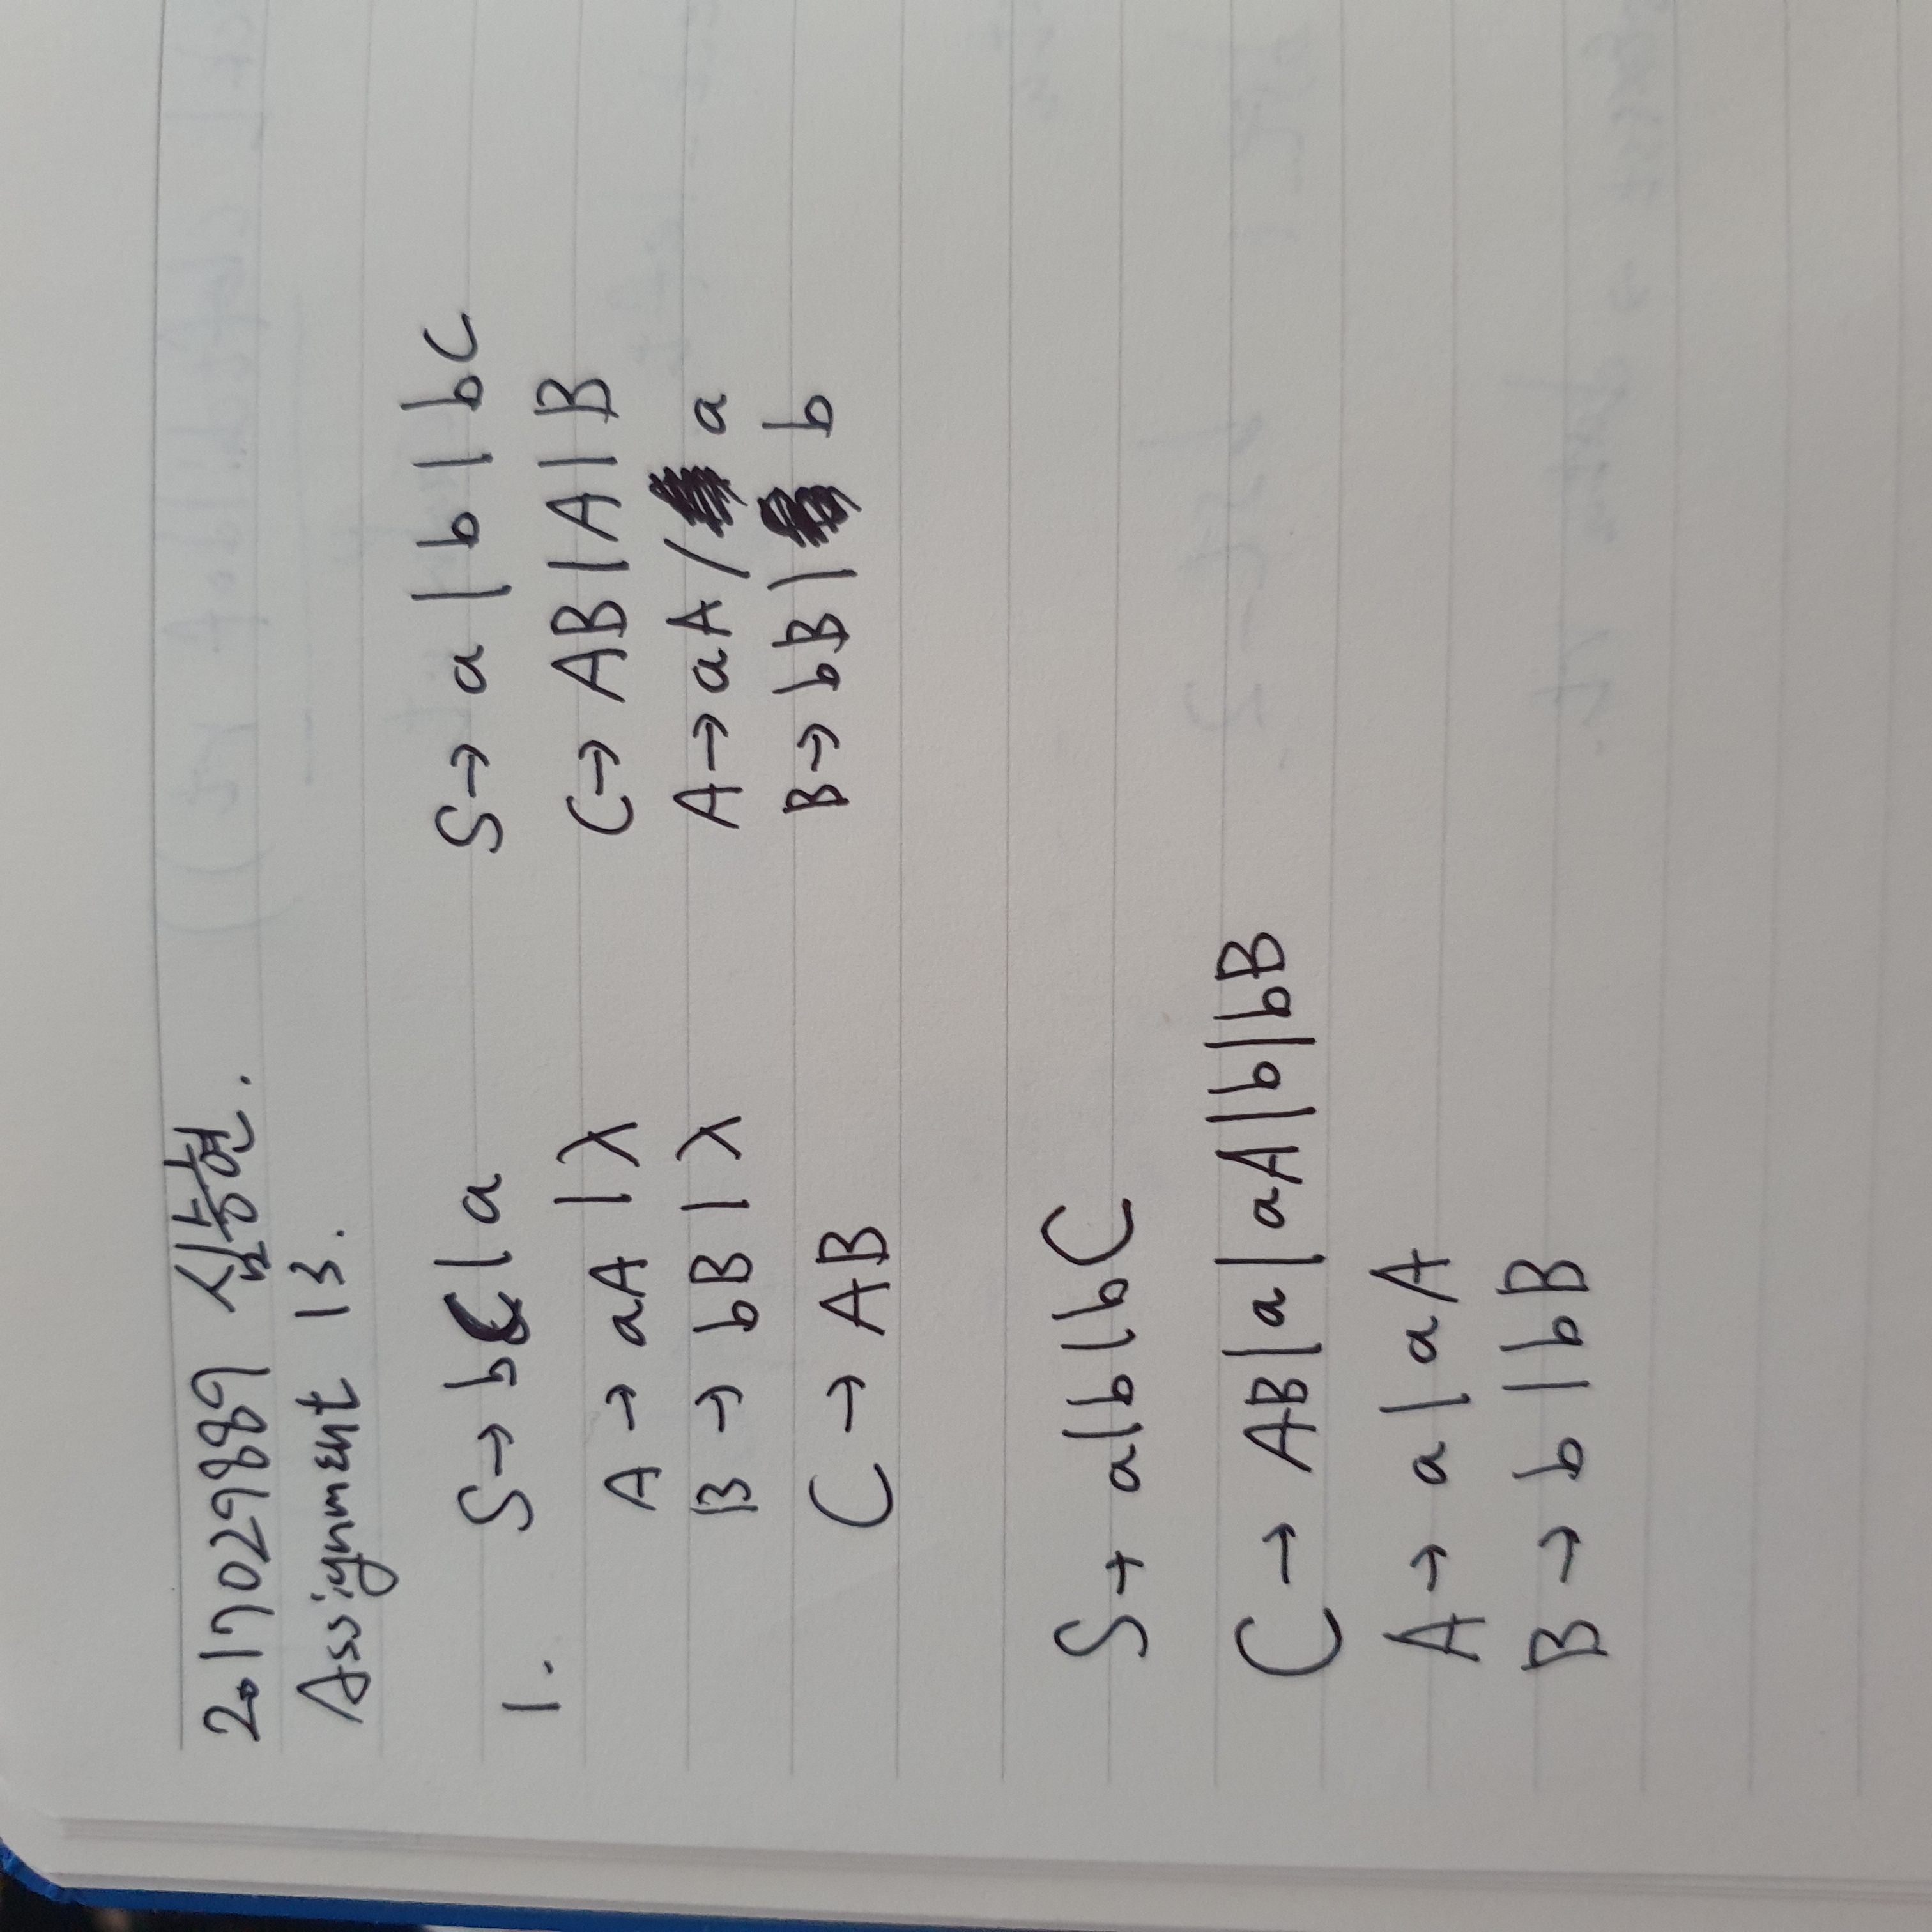 2017029889 심능현.
Assignment 13.
1.
S → bC | a
A → aA | λ
B → bB | λ
C → AB
S → a | b | bC
C → AB | A | B
A → aA / a
B → bB | b
S → a|b|bC
C → AB|a|aA|b|bB
A → a | aA
B → b | bB